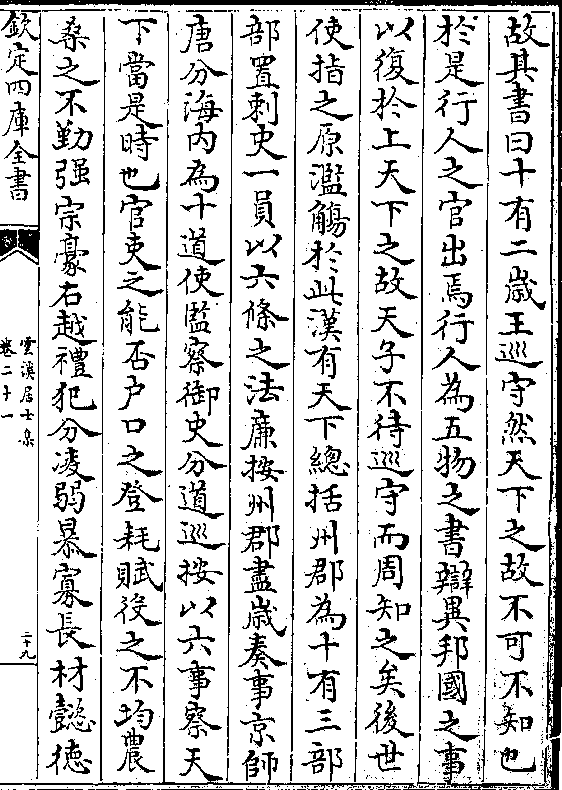 故其書曰十有二歲王巡守然天下之故不可不知也
於是行人之官出焉行人為五物之書辯異邦國之事
以復於上天下之故天子不待巡守而周知之矣後世
使指之原濫觴於此漢有天下總括州郡為十有三部
部置刺史一員以六條之法廉按州郡盡歲奏事京師
唐分海内為十道使監察御史分道巡按以六事察天
下當是時也官吏之能否户口之登耗賦役之不均農
桑之不勤强宗豪右越禮犯分凌弱暴寡長材懿徳
欽定四庫全書
雲溪居士集
卷二十一
二十九